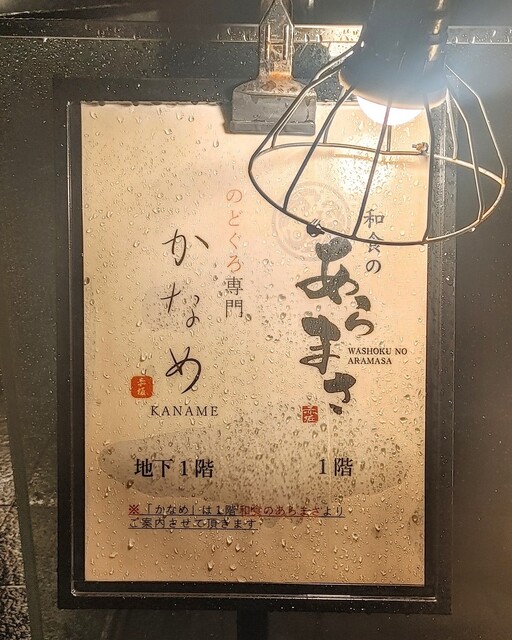 和食の
あらまさ
WASHOKU NO
ARAMASA
1階
のどぐろ専門
かなめ
KANAME
地下1階
※「かなめ」は1階和食のあらまさより
ご案内させて頂きます